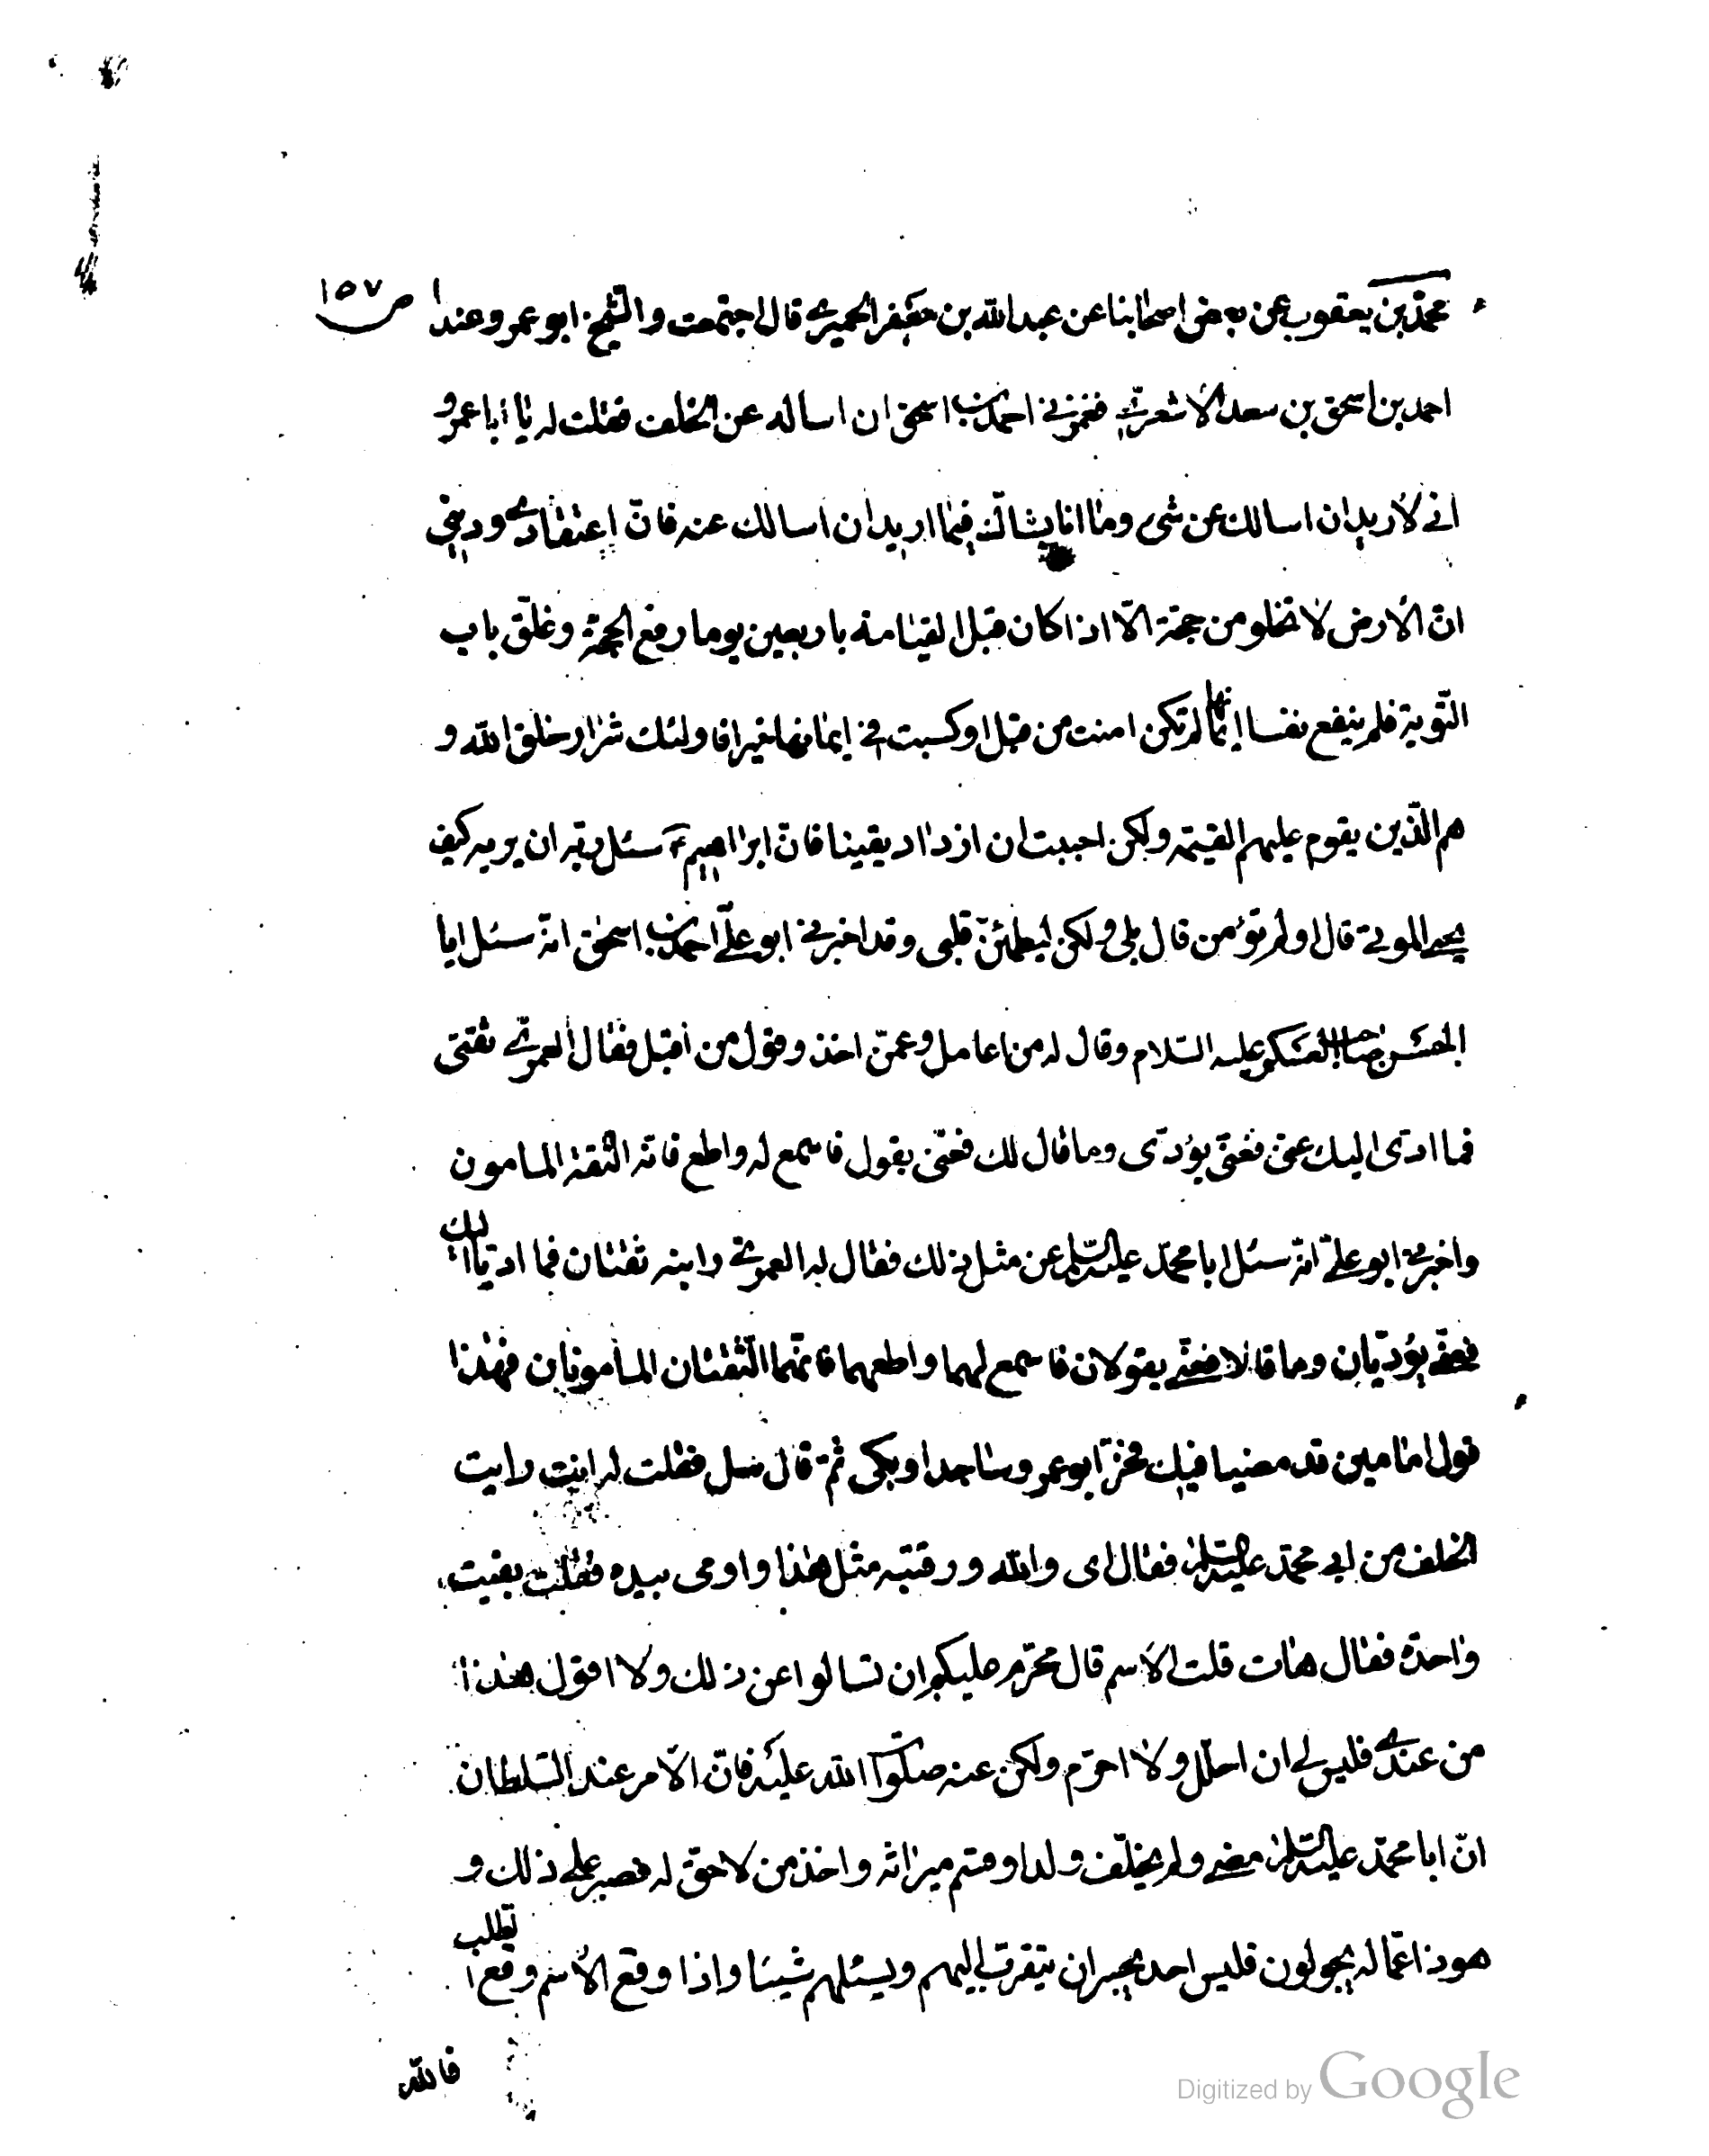 ص ١٥٧
محمّد بن يعقوب عن بعض اصحابنا عن عبد الله بن جعفر الحميرى قال اجتمعت والشّيخ ابو عمرو عند
احمد بن اسحق بن سعد الأشعرىّ فغمزنى احمد بن اسحق ان اساله عن الخلف فقلت له يا ابا عمرو
انى لأريد ان اسالك عن شىء وما انا بشاكّ فيما اريد ان اسالك عنه فانّ اعتقادى ودينى
انّ الأرض لا تخلو من حجة الّا اذا كان قبل القيامة باربعين يوما رفع الحجّة وغلّق باب
التّوبة فلم ينفع نفسا ايمانها لم تكن امنت من قبل او كسبت فى ايمانها خيرا فاولئك شرار خلق الله و
هم الّذين يقوم عليهم القيمة ولكن احببت ان ازداد يقينا فانّ ابراهيم ع سئل ربّه ان يريه كيف
يحيى الموتى قال اولم تؤمن قال بلى ولكن ليطمئنّ قلبى وقد اخبرنى ابو علىّ احمد بن اسحق انّه سئل ابا
الحسن صاحب العسكر عليه السّلام وقال له من اعامل وعمّن اخذ وقول من اقبل فقال العمرىّ ثقتى
فما ادّى اليك عنّى فعنّى يؤدّى وما قال لك فعنّى يقول فاسمع له واطع فانّه الثّقة المامون
واخبرنى ابو علىّ انّه سئل ابا محمّد عليه السّلم عن مثل ذلك فقال له العمرى وابنه ثقتان فما ادّيا اليك
فعنّى يؤدّيان وما قالا فعنّى يقولان فاسمع لهما واطعهما فانّهما الثّقتان المأمونان فهذا
قول امامين قد مضيا فيك فخرّ ابو عمرو ساجدا وبكى ثمّ قال سل فقلت له انت رايت
الخلف من ابى محمّد عليه السّلم فقال اى والله ورقبته مثل هذا واومى بيده فقلت بقيت
واحدة فقال هات قلت الاسم قال محرّم عليكم ان تسالوا عن ذلك ولا اقول هذا
من عندى فليس لى ان احلّل ولا احرّم ولكن عنه صلوات الله عليه فانّ الأمر عند السّلطان
انّ ابا محمّد عليه السّلم مضى ولم يخلّف ولدا وقسم ميراثه واخذ من لا حقّ له فصبر على ذلك و
هو ذا عمّاله يجولون فليس احد يجسر ان يتقرب اليهم ويسئلهم شيئا واذا وقع الأسم وقع الطلب
فالله
Digitized by Google